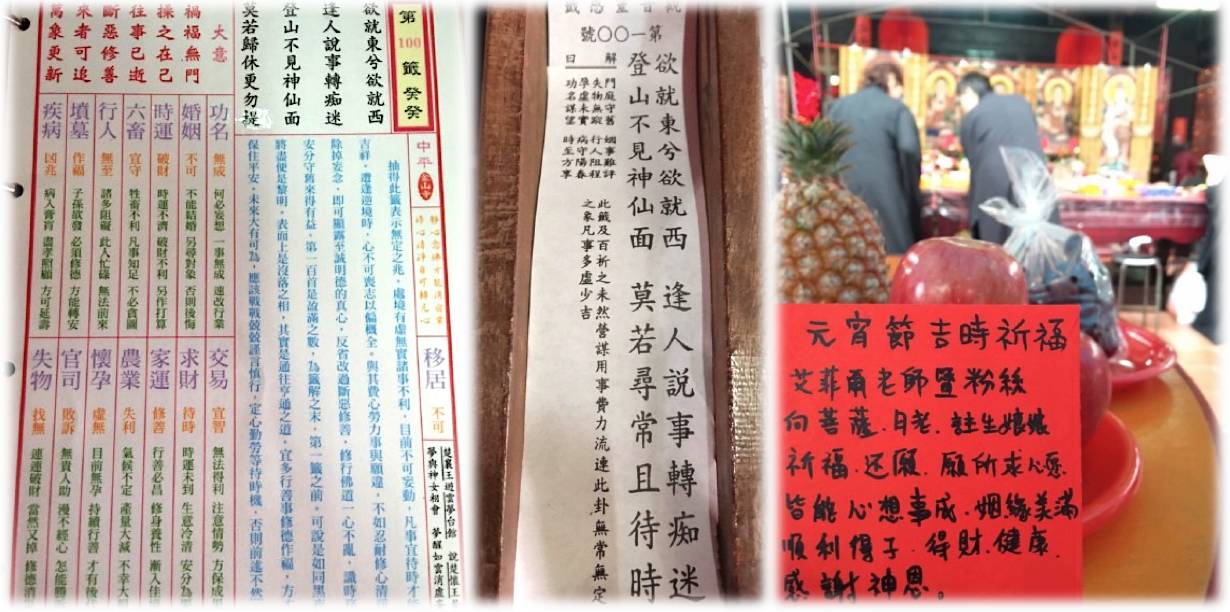 第100籤癸癸
欲就東兮欲就西
逢人說事轉痴迷
登山不見神仙面
莫若歸休更勿提
大意
禍福無門
操之在己
往事已逝
斷惡修善
來者可追
萬象更新
中平 金山寺
靜心念佛才能消宿業
修心清淨自可轉凡心
抽得此籤表示無定之兆，處境有虛無實諸事不利，目前不可妄動，凡事宜待時才
吉祥。遭逢逆境時，心不可喪志以偏概全。與其費心勞力事與願違，不如忍耐修心清
除掉妄念，即可顯露至誠明德的真心，反省改過斷惡修善，修行佛道一心不亂，識時
安分守舊來得有益。第一百首是諡滿之數，為籤解之末，第一籤之前。可說是如同黑
將盡便是黎明，表面上是沒落之相，其實是通往亨通之道，宜多行善事修德作福，方
保住平安，未來大有可為，應該戰戰兢兢謹言慎行，定心勤勞等待時機，否則前途不然
功名 無成 何必妄想 一事無成 速改行業
婚姻 不可 不能結婚 另尋對象 否則後悔
時運 破財 時運不濟 破財不利 另作打算
六畜 宜守 牲畜不利 凡事知足 不必貪圖
行人 無至 諸多阻礙 此人忙碌 無法前來
墳墓 作福 子孫欲發 必須修德 方能轉安
疾病 凶兆 病入膏肓 盡孝照顧 方可延壽
移居 不可
楚襄王遊雲夢台館 說楚懷王
夢與神女相會 夢醒如雲消
交易 宜智 無法得利 注意情勢 方保成
求財 待時 時運未到 生意冷清 安分為
家運 修善 行善必昌 修身養性 漸入佳
農業 失利 氣候不定 產量大減 不幸大
懷孕 虛無 目前無孕 持續行善 才有後
官司 敗訴 無貴人助 漫不經心 怎能勝
失物 找無 連連破財 當然又掉 修德消
第一〇〇號
欲就東兮欲就西 逢人說事轉痴迷
登山不見神仙面 莫若尋常且待時
解曰
門庭守舊 姻事難評
失物無蹤 行人阻程
孕虛未實 病守陽春
功名謀望 時至方享
此籤及百祈之未然營謀用事費力流連此卦無常無定
之象凡事多虛少吉
元宵節吉時祈福
艾菲爾老師暨粉絲
向菩薩.月老.註生娘娘
祈福.还願.願所求心愿
皆能心想事成.姻緣美滿
順利得子.得財.健康.
感謝神恩。